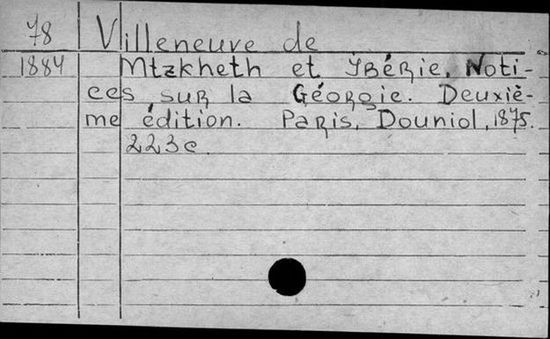 78 Villeneuve de
1884 Mtzkheth et Ibérie. Noti-
ces sur la Géorgie. Deuxiè-
me édition. Paris, Douniol, 1875.
223 c.